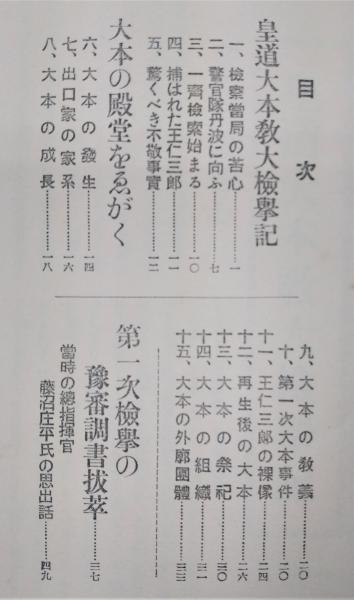 目次
皇道大本教大檢擧記
一、檢察當局の苦心………一
二、警官隊丹波に向ふ………七
三、一齊檢索始まる………一〇
四、捕はれた王仁三郎………一一
五、驚くべき不敬事實………一二
大本の殿堂をゑがく
六、大本の發生………一四
七、出口家の家系………一六
八、大本の成長………一八
九、大本の教義………二〇
十、第一次大本事件………二〇
十一、王仁三郎の裸像………二四
十二、再生後の大本………二六
十三、大本の祭祀………二九
十四、大本の組織………三一
十五、大本の外廓團體………三三
第一次檢擧の
豫審調書拔萃………三七
當時の總指揮官
藤沼庄平氏の思出話………四九